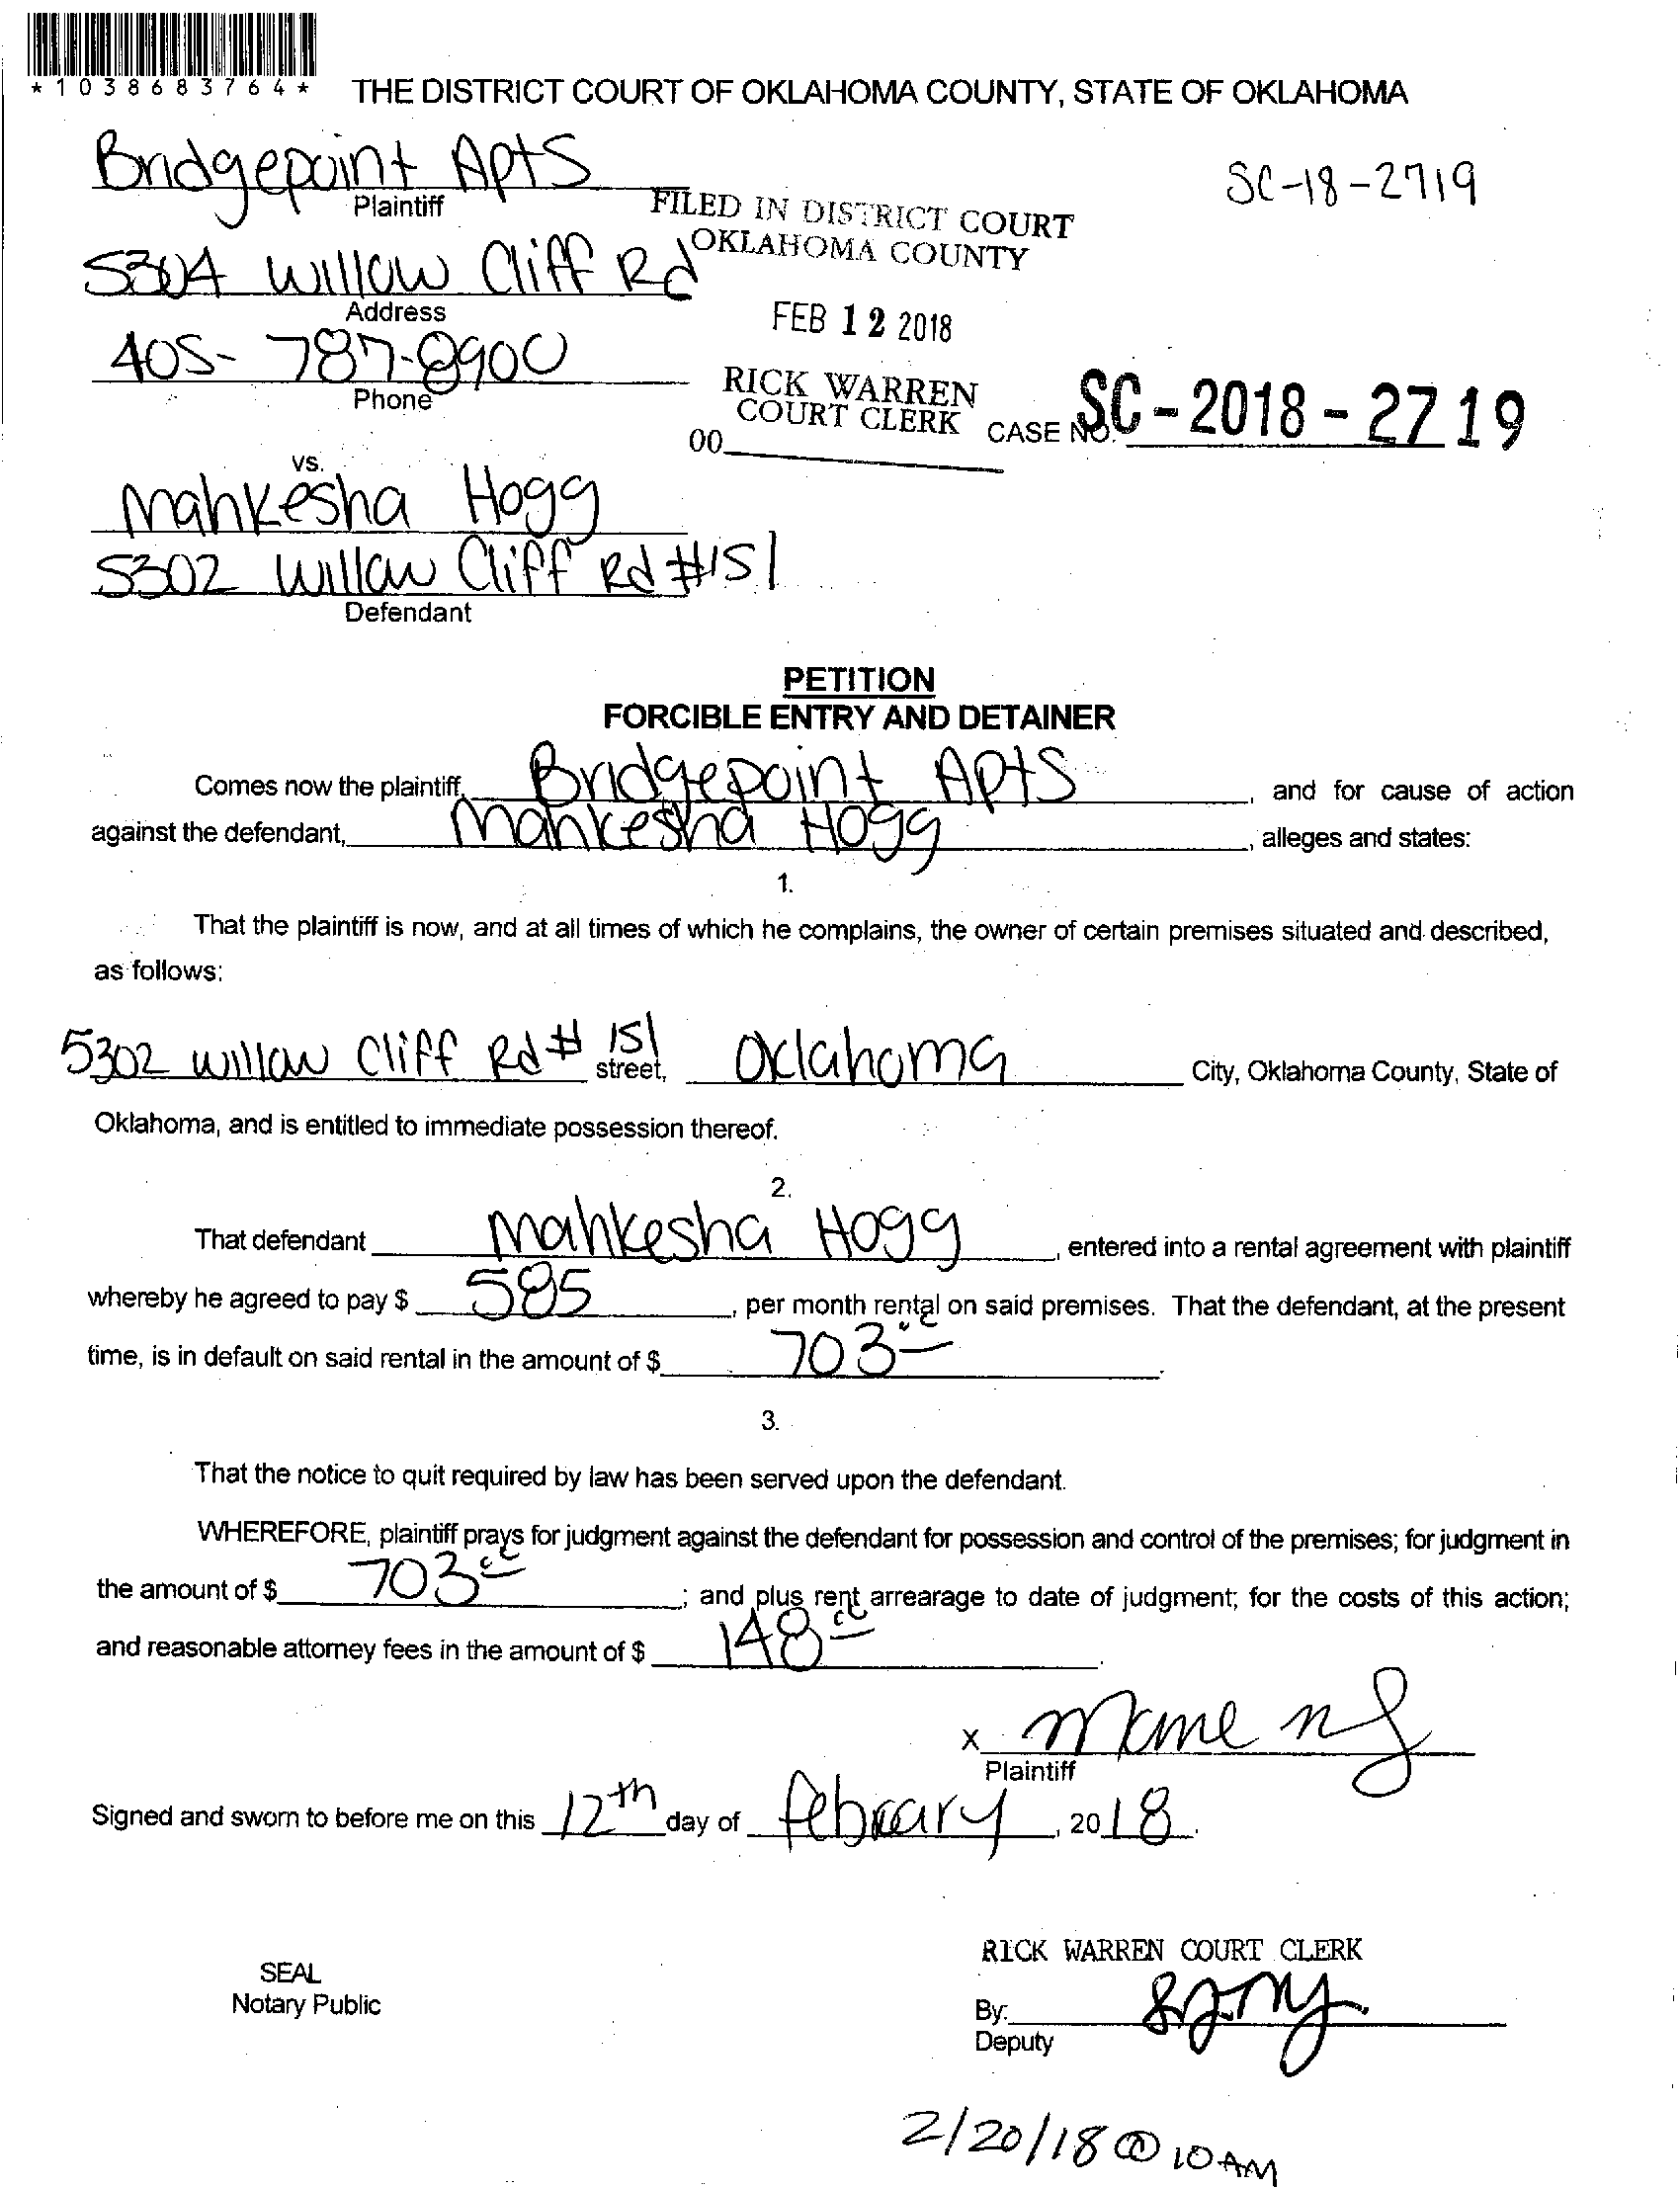 *1038683764*
THE DISTRICT COURT OF OKLAHOMA COUNTY, STATE OF OKLAHOMA
Bridgepoint Apts
Plaintiff
SC-18-2719
FILED IN DISTRICT COURT
OKLAHOMA COUNTY
5304 Willow Cliff Rd
Address
FEB 12 2018
405-787-8900
Phone
RICK WARREN
COURT CLERK
00
CASE NO. SC-2018-2719
vs.
Mahkesha Hogg
5302 Willow Cliff Rd #151
Defendant
PETITION
FORCIBLE ENTRY AND DETAINER
Comes now the plaintiff, Bridgepoint Apts, and for cause of action
against the defendant, Mahkesha Hogg, alleges and states:
1.
That the plaintiff is now, and at all times of which he complains, the owner of certain premises situated and described,
as follows:
5302 Willow Cliff Rd # 151 street, Oklahoma City, Oklahoma County, State of
Oklahoma, and is entitled to immediate possession thereof.
2.
That defendant Mahkesha Hogg, entered into a rental agreement with plaintiff
whereby he agreed to pay $ 585, per month rental on said premises. That the defendant, at the present
time, is in default on said rental in the amount of $ 703.00.
3.
That the notice to quit required by law has been served upon the defendant.
WHEREFORE, plaintiff prays for judgment against the defendant for possession and control of the premises; for judgment in
the amount of $ 703.00; and plus rent arrearage to date of judgment; for the costs of this action;
and reasonable attorney fees in the amount of $ 148.00.
X
Plaintiff
Signed and sworn to before me on this 12th day of February, 2018.
RICK WARREN COURT CLERK
SEAL
Notary Public
By:
Deputy
2/20/18 @ 10 AM